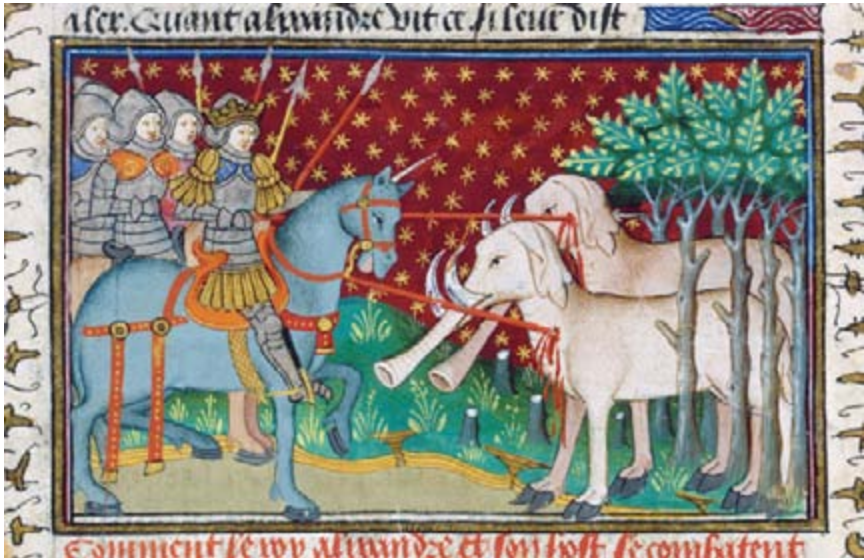 aler. Quant alixandre vit ce si leur dist
Comment le roy alixandre et son host se combatent